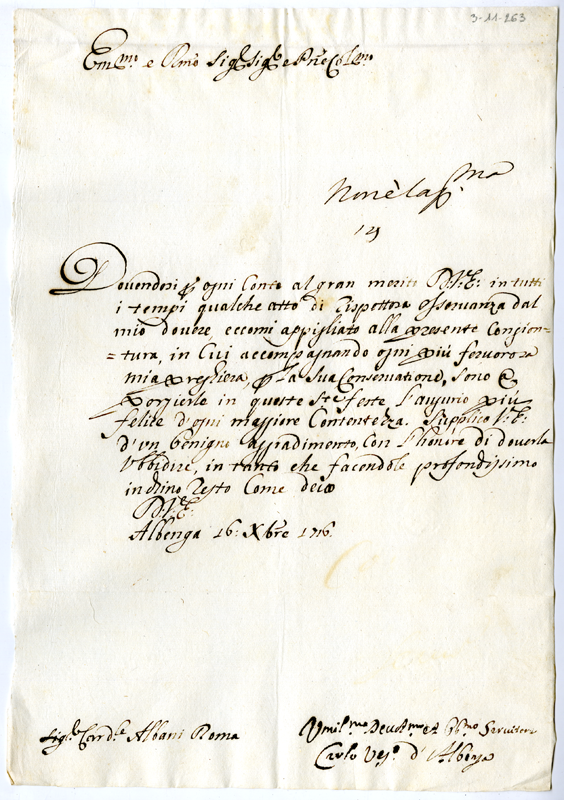 3-11-263
Em.mo e Rmo Sig.r Sig.r e Pne Col.mo
Dovendosi p ogni Conto al gran merito D. V. E: in tutti
i tempi qualche atto di rispettosa osservanza dal
mio dovere, eccomi appigliato alla presente Congion-
=tura, in Cui accompagnando ogni più fervorosa
mia preghiera, p la sua Conservatione, sono a
porgierle in queste S.te feste l'augurio più
felice d'ogni maggiore Contentezza. Supplico V: E:
d'un benigno aggradimento, con l'honore di doverla
Ubbidire, in tanto che facendole profondissimo
inchino resto Come devo
D. V. E.
Albenga 16: Xbre 1716
Sig.r Card.le Albani Roma
Umil.mo Devot.mo et Obb.mo Servitore
Carlo Ves.o d'Albenga